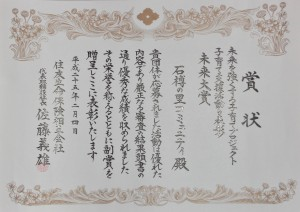 賞状
未来を強くする子育てプロジェクト
子育て支援活動の表彰
未来大賞
石樽の里コミュニティ 殿
貴団体が応募されました活動は優れた
内容であり厳正なる審査の結果頭書の
通り優秀な成績を収められました
その栄誉を称えるとともに副賞を
贈呈しここに表彰いたします
平成二十五年二月四日
住友生命保険相互会社
代表取締役社長 佐藤義雄